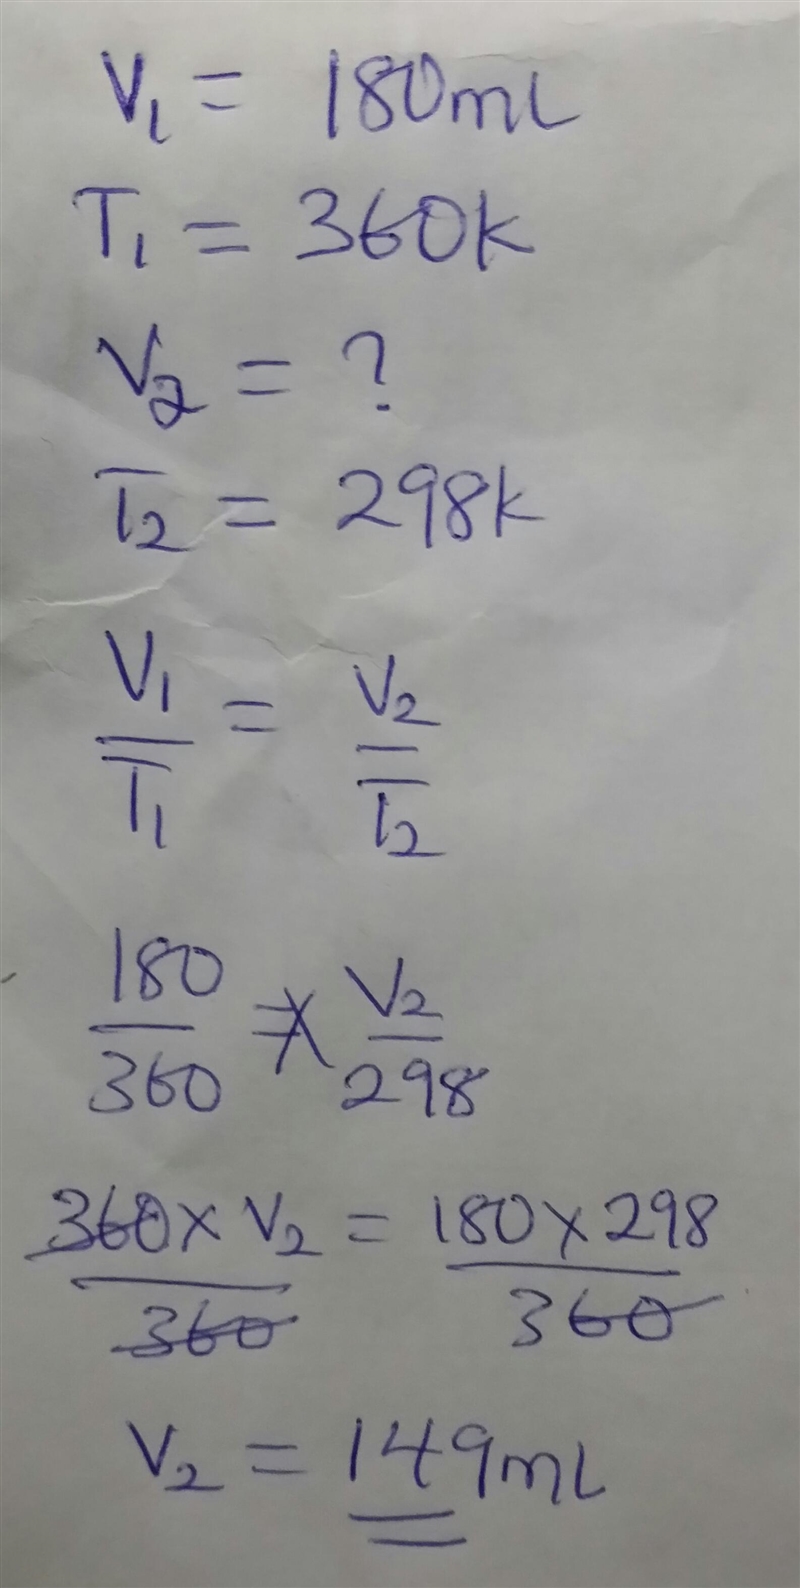 V₁ = 180mL
T₁ = 360K
V₂ = ?
T₂ = 298K
V₁/T₁ = V₂/T₂
180/360 = V₂/298
360 × V₂/360 = 180 × 298/360
V₂ = 149mL